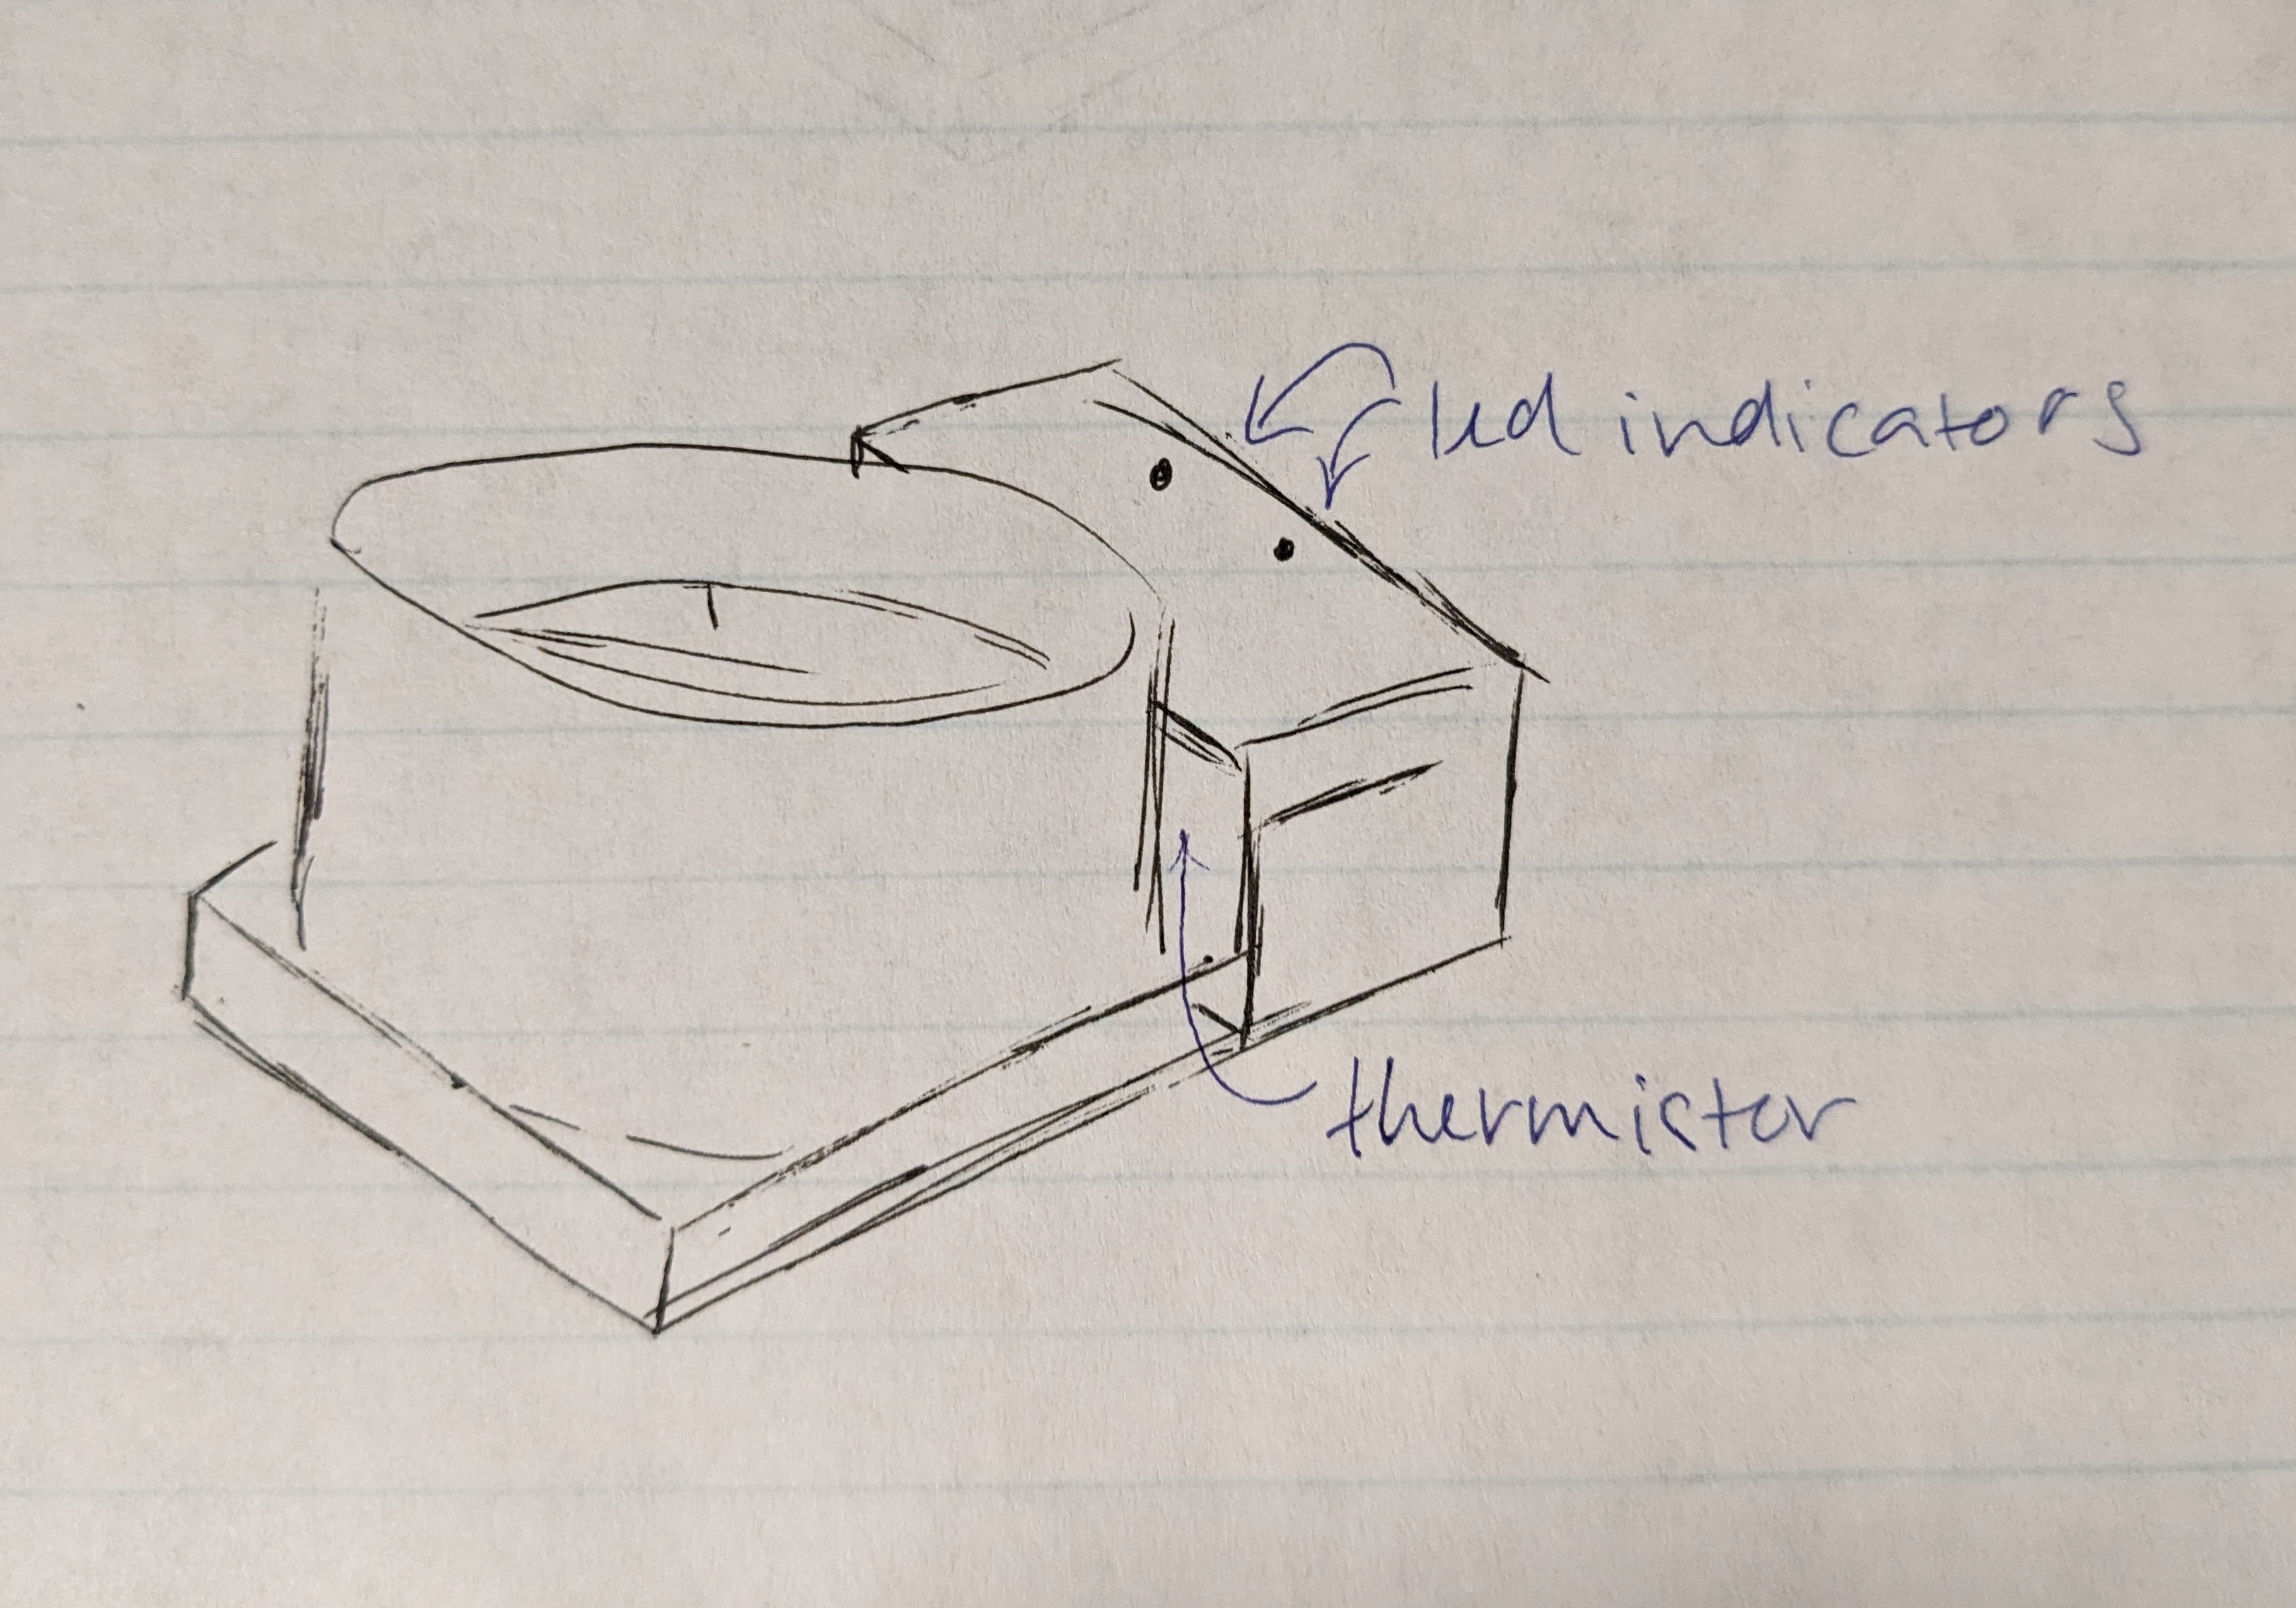 led indicators
thermistor